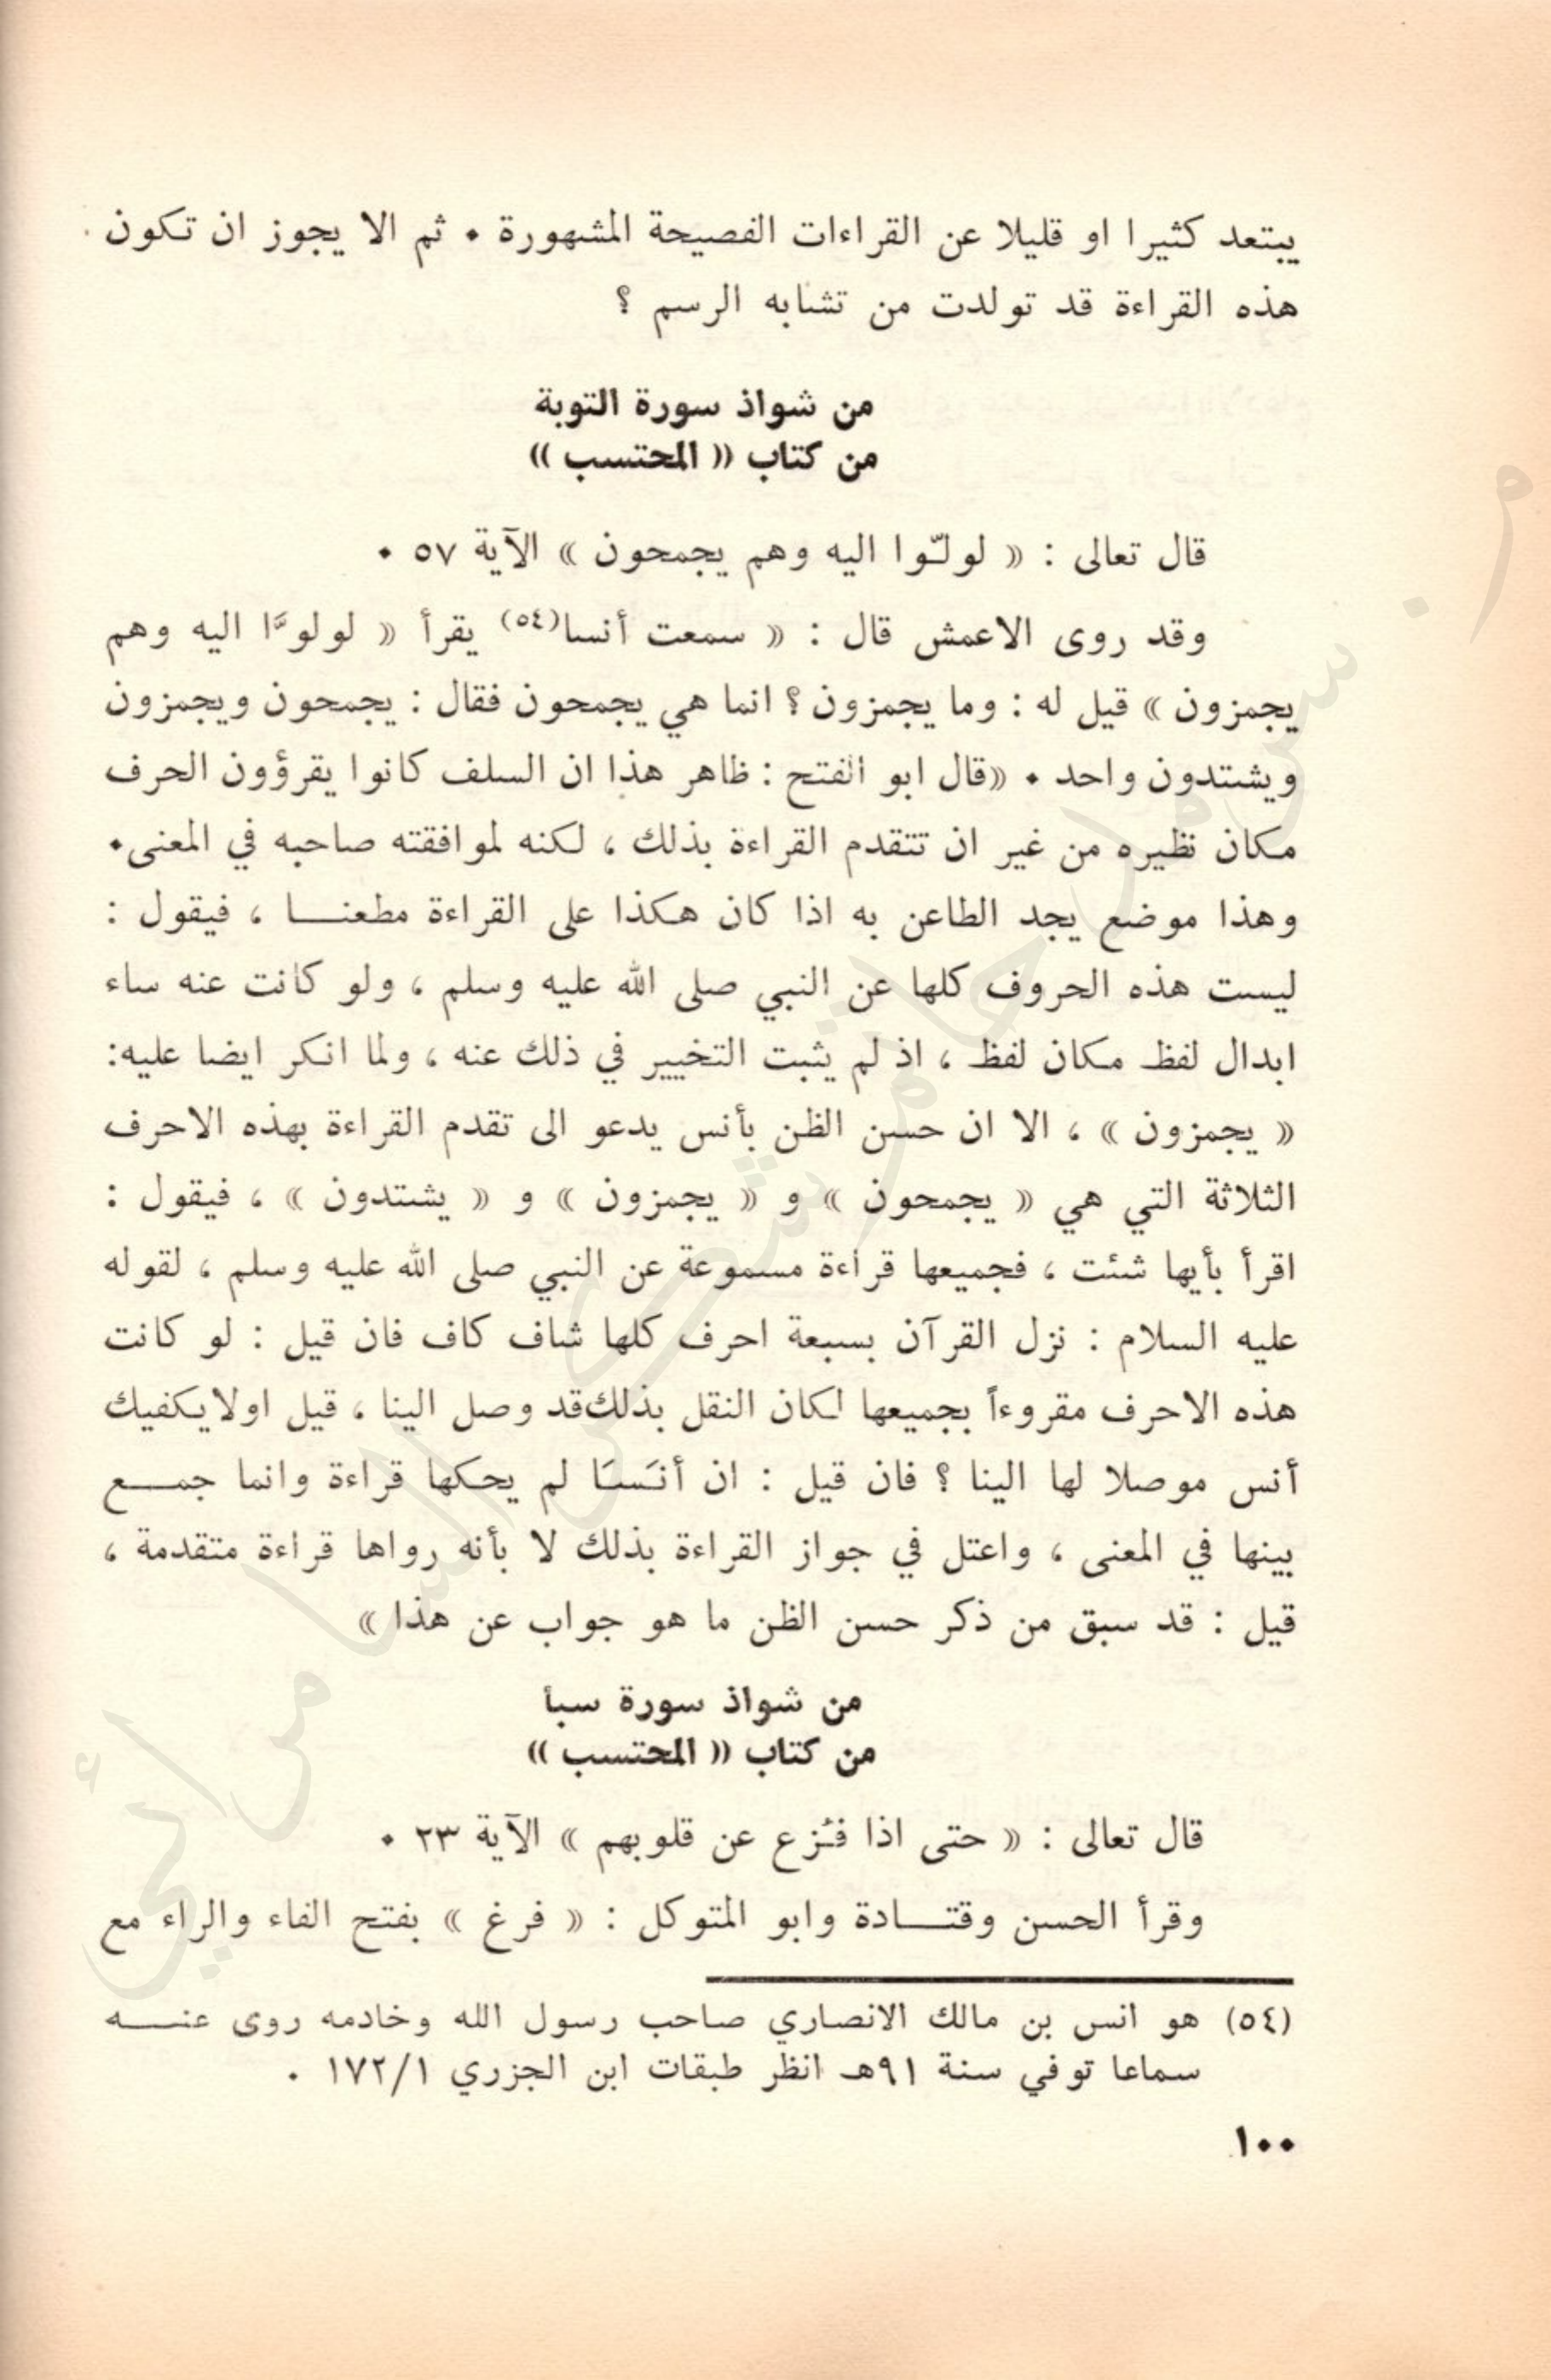 يبتعد كثيرا او قليلا عن القراءات الفصيحة المشهورة ٠ ثم الا يجوز ان تكون
هذه القراءة قد تولدت من تشابه الرسم ؟
من شواذ سورة التوبة
من كتاب (( المحتسب ))
قال تعالى : (( لولّوا اليه وهم يجمحون )) الآية ٥٧ ٠
وقد روى الاعمش قال : (( سمعت أنسا(٥٤) يقرأ (( لولوَّا اليه وهم
يجمزون )) قيل له : وما يجمزون ؟ انما هي يجمحون فقال : يجمحون ويجمزون
ويشتدون واحد ٠ ((قال ابو الفتح : ظاهر هذا ان السلف كانوا يقرؤون الحرف
مكان نظيره من غير ان تتقدم القراءة بذلك ، لكنه لموافقته صاحبه في المعنى٠
وهذا موضع يجد الطاعن به اذا كان هكذا على القراءة مطعنـــا ، فيقول :
ليست هذه الحروف كلها عن النبي صلى الله عليه وسلم ، ولو كانت عنه ساء
ابدال لفظ مكان لفظ ، اذ لم يثبت التخيير في ذلك عنه ، ولما انكر ايضا عليه:
(( يجمزون )) ، الا ان حسن الظن بأنس يدعو الى تقدم القراءة بهذه الاحرف
الثلاثة التي هي (( يجمحون )) و (( يجمزون )) و (( يشتدون )) ، فيقول :
اقرأ بأيها شئت ، فجميعها قراءة مسموعة عن النبي صلى الله عليه وسلم ، لقوله
عليه السلام : نزل القرآن بسبعة احرف كلها شاف كاف فان قيل : لو كانت
هذه الاحرف مقروءاً بجميعها لكان النقل بذلك قد وصل الينا ، قيل اولا يكفيك
أنس موصلا لها الينا ؟ فان قيل : ان أنَسَا لم يحكها قراءة وانما جمــع
بينها في المعنى ، واعتل في جواز القراءة بذلك لا بأنه رواها قراءة متقدمة ،
قيل : قد سبق من ذكر حسن الظن ما هو جواب عن هذا ))
من شواذ سورة سبأ
من كتاب (( المحتسب ))
قال تعالى : (( حتى اذا فُزع عن قلوبهم )) الآية ٢٣ ٠
وقرأ الحسن وقتـــادة وابو المتوكل : (( فرغ )) بفتح الفاء والراء مع
(٥٤) هو انس بن مالك الانصاري صاحب رسول الله وخادمه روى عنـــه
سماعا توفي سنة ٩١هـ انظر طبقات ابن الجزري ١٧٢/١ .
١٠٠